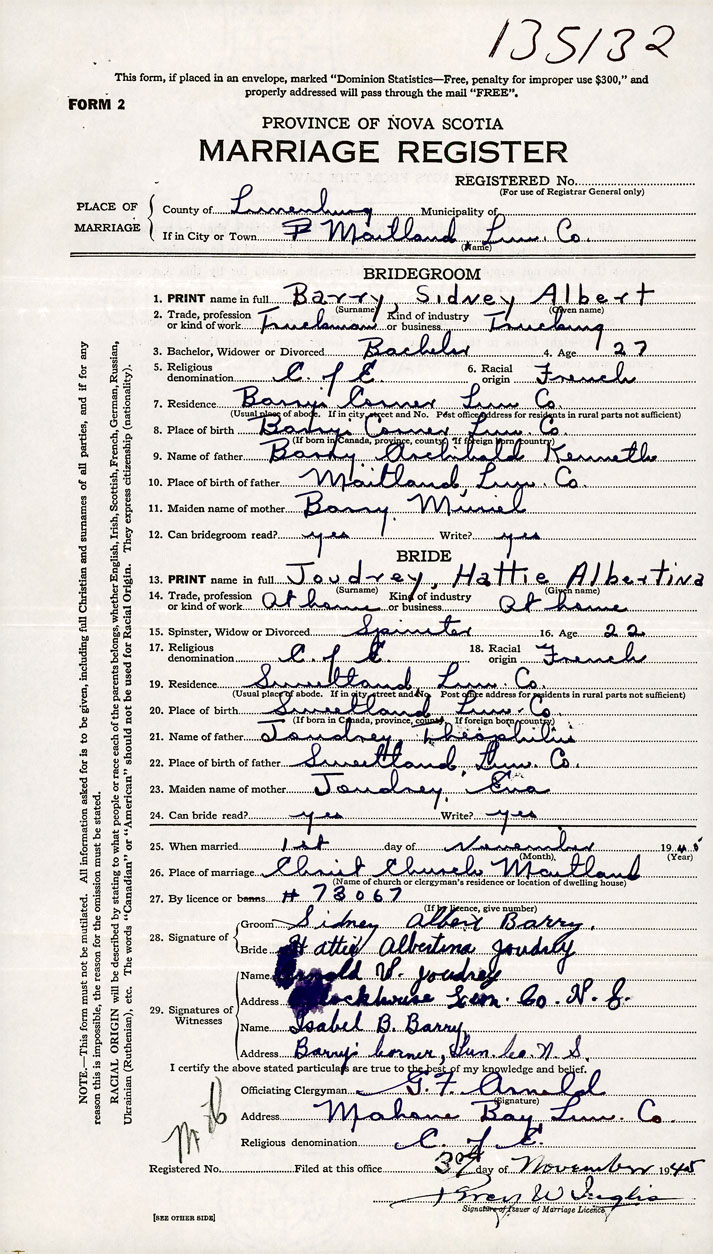 135132
This form, if placed in an envelope, marked "Dominion Statistics—Free, penalty for improper use $300," and
properly addressed will pass through the mail "FREE".
FORM 2
PROVINCE OF NOVA SCOTIA
MARRIAGE REGISTER
REGISTERED No.
(For use of Registrar General only)
PLACE OF MARRIAGE
County of Lunenburg Municipality of
If in City or Town Maitland Lun. Co.
(Name)
BRIDEGROOM
1. PRINT name in full Barry, Sidney Albert
(Surname) (Given name)
2. Trade, profession or kind of work Truckman Kind of industry or business Trucking
3. Bachelor, Widower or Divorced Bachelor 4. Age 27
5. Religious denomination C of E. 6. Racial origin French
7. Residence Barry's Corner Lun Co.
(Usual place of abode. If in city street and No. Post office address for residents in rural parts not sufficient)
8. Place of birth Barry's Corner Lun Co.
(If born in Canada, province, county) (If foreign born country)
9. Name of father Barry Archibald Kenneth
10. Place of birth of father Maitland Lun. Co.
11. Maiden name of mother Barry, Muriel
12. Can bridegroom read? yes Write? yes
BRIDE
13. PRINT name in full Joudrey, Hattie Albertina
(Surname) (Given name)
14. Trade, profession or kind of work At home Kind of industry or business At home
15. Spinster, Widow or Divorced Spinster 16. Age 22
17. Religious denomination C. of E 18. Racial origin French
19. Residence Sweetland, Lun. Co.
(Usual place of abode. If in city street and No. Post office address for residents in rural parts not sufficient)
20. Place of birth Sweetland Lun. Co.
(If born in Canada, province, county. If foreign born country)
21. Name of father Joudrey Theophilus
22. Place of birth of father Sweetland Lun. Co.
23. Maiden name of mother Joudrey, Eva
24. Can bride read? yes Write? yes
25. When married 1st day of November 1945
(Month) (Year)
26. Place of marriage Christ Church Maitland
(Name of church or clergyman's residence or location of dwelling house)
27. By licence or banns # 73067
(If by licence, give number)
28. Signature of
Groom Sidney Albert Barry.
Bride Hattie Albertina Joudrey
29. Signatures of Witnesses
Name Arnold V. Joudrey
Address Lun. Co. N.S.
Name Isabel B. Barry
Address Barry's Corner, Lun. Co. N.S.
I certify the above stated particulars are true to the best of my knowledge and belief.
Officiating Clergyman G.F. Arnold
(Signature)
Address Mahone Bay Lun. Co.
Religious denomination C. of E.
Registered No. Filed at this office day of November 1945
Percy W Inglis
Signature of Issuer of Marriage Licence
[SEE OTHER SIDE]
NOTE.—This form must not be mutilated. All information asked for is to be given, including full Christian and surnames of all parties, and if for any
reason this is impossible, the reason for the omission must be stated.
RACIAL ORIGIN will be described by stating to what people or race each of the parents belongs, whether English, Irish, Scottish, French, German, Russian,
Ukrainian (Ruthenian), etc. The words "Canadian" or "American" should not be used for Racial Origin. They express citizenship (nationality).